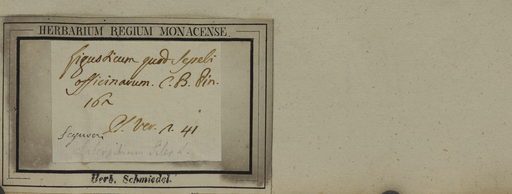 HERBARIUM REGIUM MONACENSE.
Ligusticum quod Seseli
officinarum. C. B. Pin.
162
Pl. Ver. 2. 41
Herb. Schmiedel.